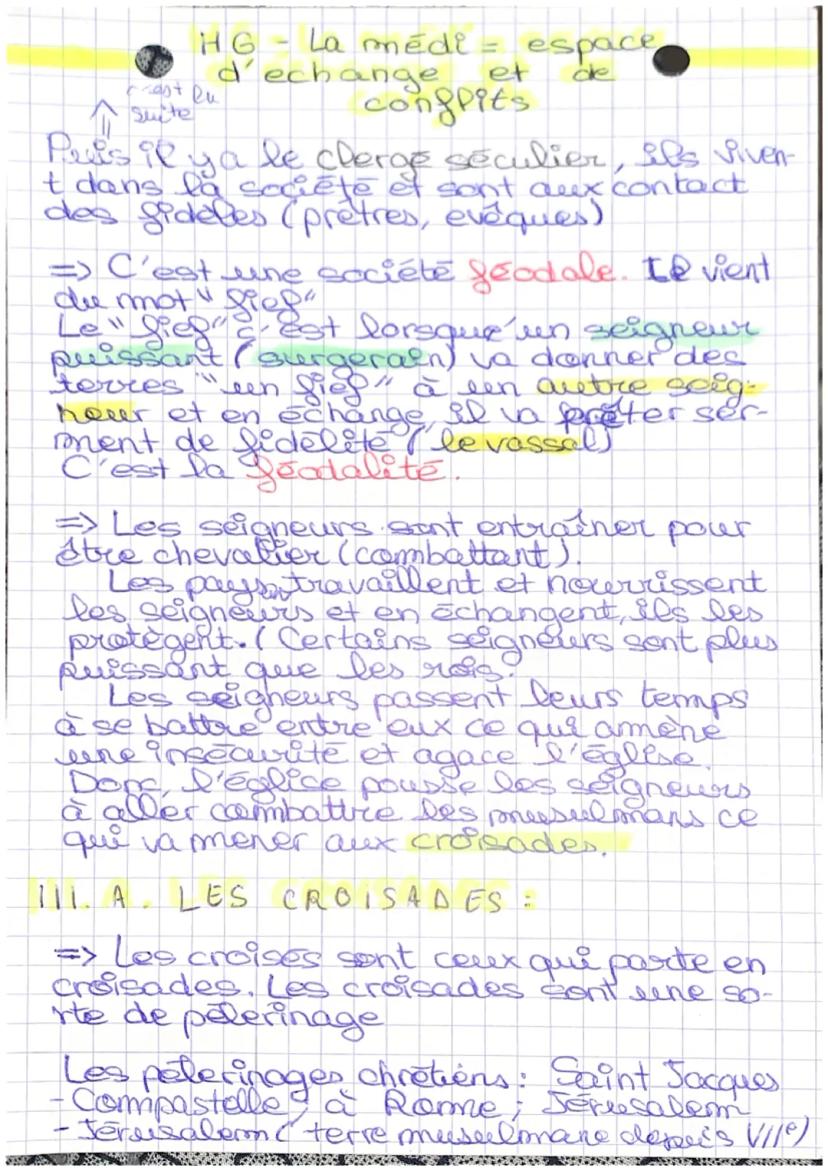 HG - La médi = espace
d'echange et de
conflits
c'est la
suite
Puis il y a le clergé séculier, ils viven-
t dans la société et sont aux contact
des fidèles (prêtres, evêques)
=> C'est une société féodale. Il vient
du mot "fief"
Le "fief" c'est lorsque un seigneur
puissant (surgerain) va donner des
terres "un fief" à un autre seig-
neur et en échange, il va prêter ser-
ment de fidélité (le vassal)
C'est la féodalité.
=> Les seigneurs sont entraîner pour
être chevalier (combattant).
Les paysn travaillent et nourrissent
les seigneurs et en échangent, ils les
protègent. (Certains seigneurs sont plus
puissant que les rois.
Les seigneurs passent leurs temps
à se battre entre eux ce qui amène
une insécurité et agace l'église.
Donc, l'églice pousse les seigneurs
à aller combattre les musulmans ce
qui va mener aux croisades.
III. A. LES CROISADES :
=> Les croisés sont ceux qui parte en
croisades. Les croisades sont une so-
rte de pèlerinage
Les pèlerinages chrétiens : Saint Jacques
- Compastelle, à Rome ; Jérusalem
- Jérusalem (terre musulmane depuis VIIe)